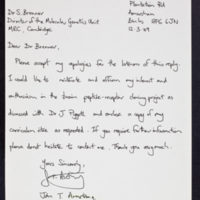 Plantation Rd
Dr S. Brenner
Amersham
Director of the Molecular Genetics Unit
Bucks HP6 6JN
MRC, Cambridge.
12.3.89
Dear Dr Brenner,
Please accept my apologies for the lateness of this reply.
I would like to reiterate and affirm my interest and
enthusiasm in the brain peptide-receptor cloning project as
discussed with Dr J Piggott and enclose a copy of my
curriculum vitae as requested. If you require further information
please don't hesitate to contact me. Thank you very much.
Yours Sincerely,
John T Armstrong